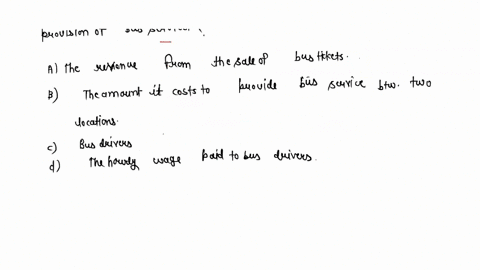 provision of bus service ?
A) The revenue from the sale of bus tickets.
B) The amount it costs to provide bus service btw. two
locations.
c) Bus drivers
d) The hourly wage paid to bus drivers.